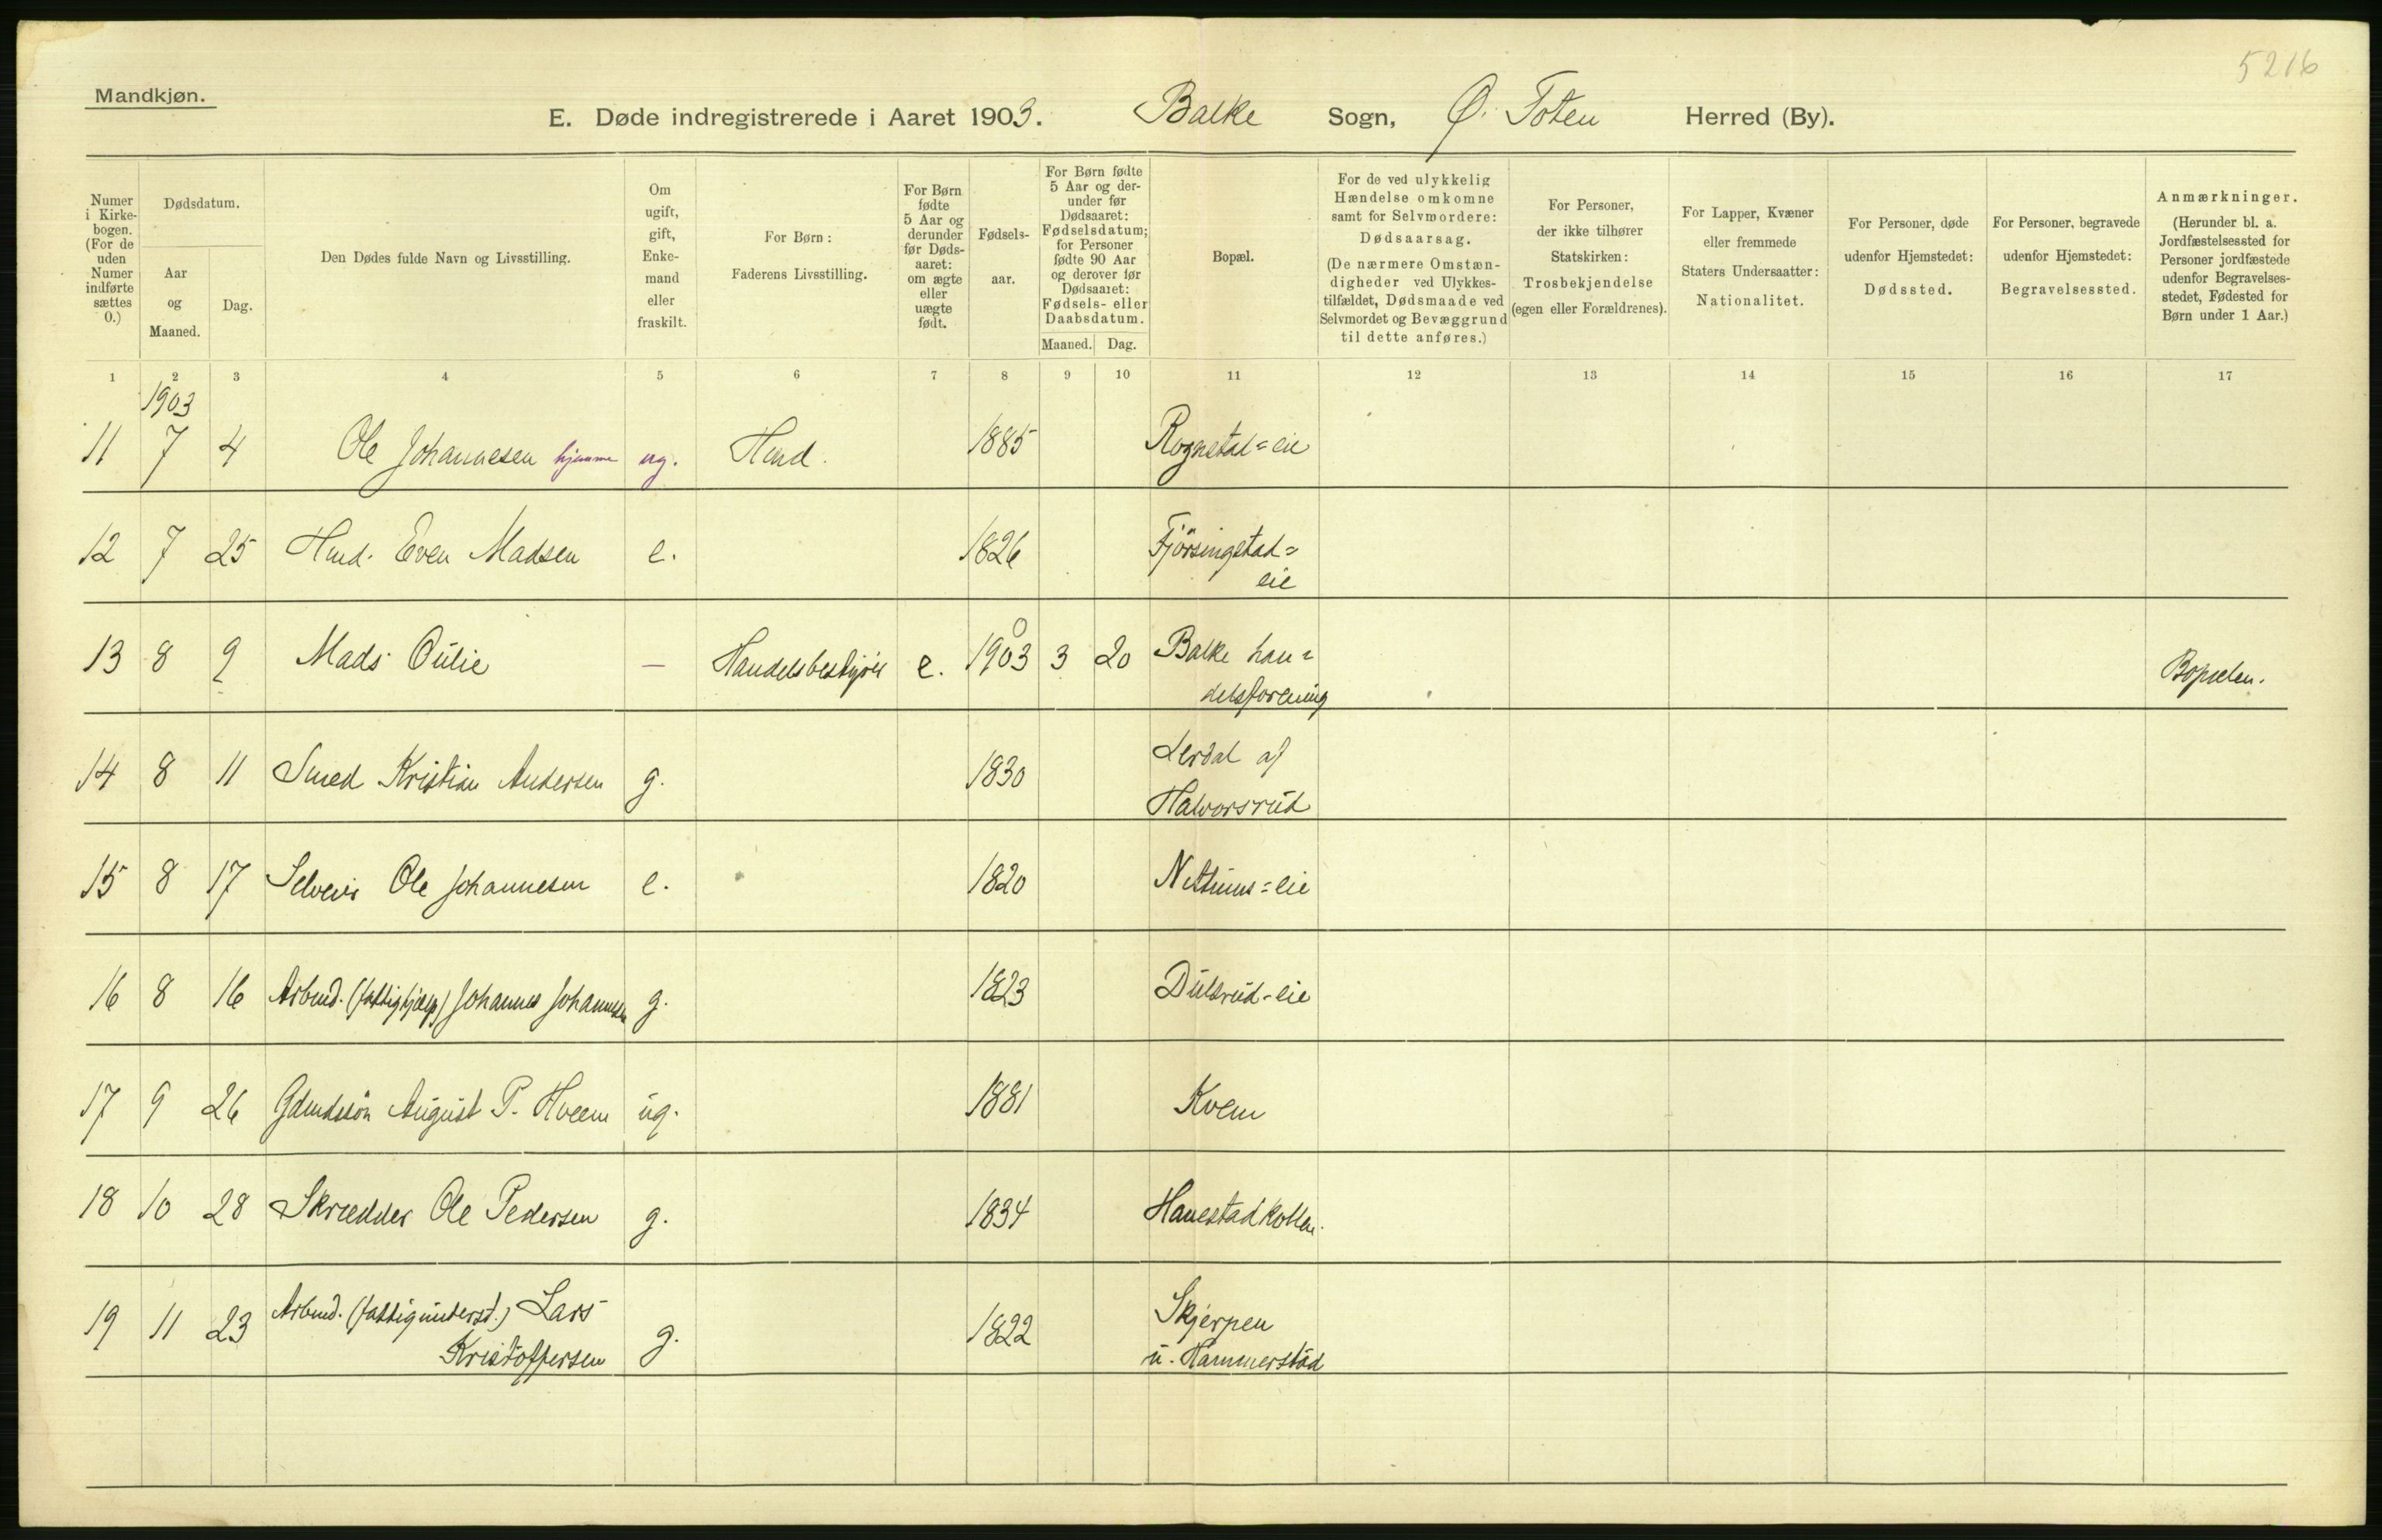 5216
Mandkjøn.
E. Døde indregistrerede i Aaret 1903. Balke Sogn, Ø. Toten Herred (By).
Numer i Kirkebogen. (For de uden Numer indførte sættes 0.)
Dødsdatum.
Aar og Maaned.
Dag.
Den Dødes fulde Navn og Livsstilling.
Om ugift, gift, Enkemand eller fraskilt.
For Børn: Faderens Livsstilling.
For Børn fødte 5 Aar og derunder før Dødsaaret: om ægte eller uægte født.
Fødselsaar.
For Børn fødte 5 Aar og derunder før Dødsaaret: Fødselsdatum; for Personer fødte 90 Aar og derover før Dødsaaret: Fødsels- eller Daabsdatum.
Maaned. Dag.
Bopæl.
For de ved ulykkelig Hændelse omkomne samt for Selvmordere: Dødsaarsag. (De nærmere Omstændigheder ved Ulykkestilfældet, Dødsmaade ved Selvmordet og Bevæggrund til dette anføres.)
For Personer, der ikke tilhører Statskirken: Trosbekjendelse (egen eller Forældrenes).
For Lapper, Kvæner eller fremmede Staters Undersaatter: Nationalitet.
For Personer, døde udenfor Hjemstedet: Dødssted.
For Personer, begravede udenfor Hjemstedet: Begravelsessted.
Anmærkninger. (Herunder bl. a. Jordfæstelsessted for Personer jordfæstede udenfor Begravelsesstedet, Fødested for Børn under 1 Aar.)
1 2 3 4 5 6 7 8 9 10 11 12 13 14 15 16 17
1903
11 7 4 Ole Johannesen hjemme ug. Hmd. 1885 Rognstad=eie
12 7 25 Hmd. Even Madsen e. 1826 Fjörsingstad=
eie
13 8 9 Mads Oulie — Handelsbestyrer e. 1903 3 20 Balke han=
delsforening Bopælen.
14 8 11 Smed Kristian Andersen g. 1830 Lerdal af
Halvorsrud
15 8 17 Selveier Ole Johannesen e. 1820 Nethuns=eie
16 8 16 Arbmd. (fattighjælp) Johannes Johannesen g. 1823 Dulsrud=eie
17 9 26 Gdmdssön August P. Hveem ug. 1881 Kvem
18 10 28 Skrædder Ole Pedersen g. 1834 Hanestadkollen.
19 11 23 Arbmd. (fattigunderst.) Lars
Kristoffersen g. 1822 Skjerpen
u. Hammerstad